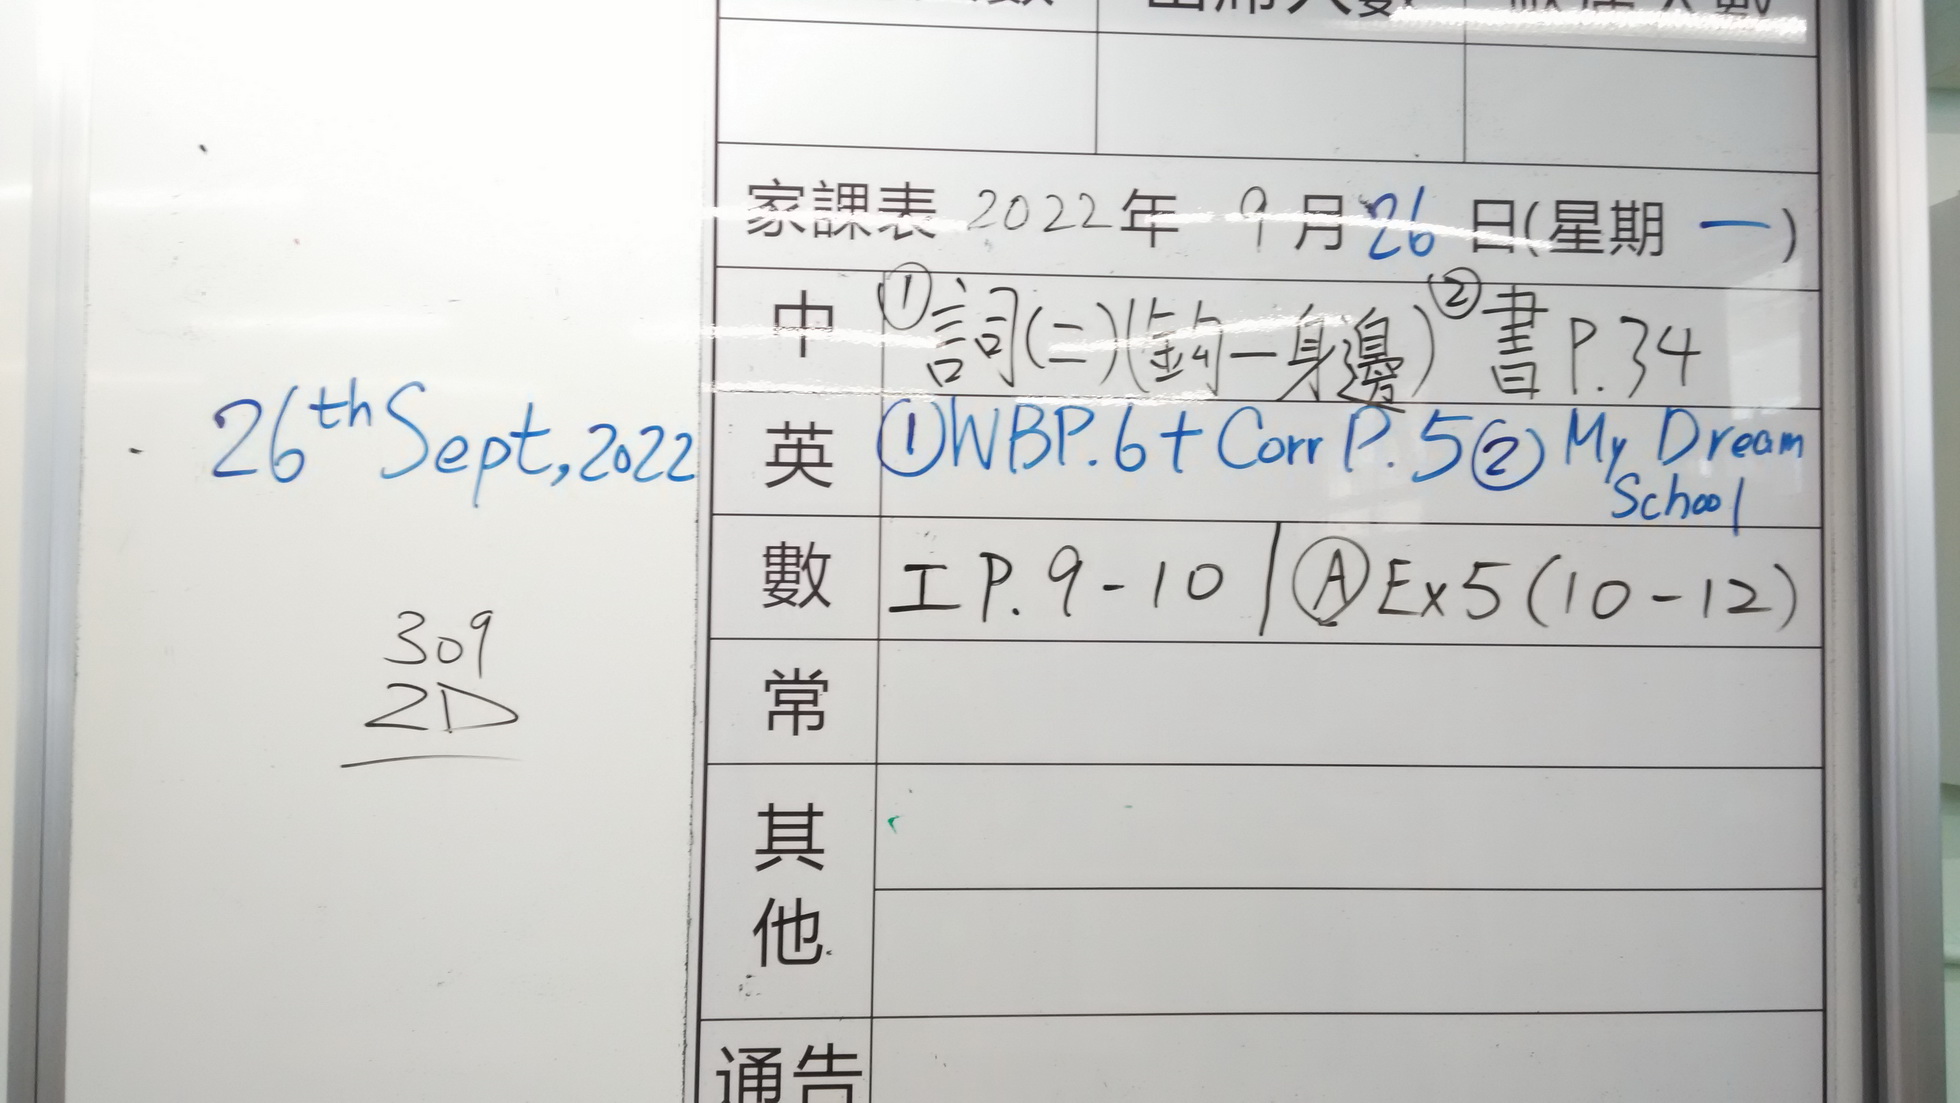 出席人數
家課表 2022年 9月26日(星期 一)
中 ①詞(二)(鈎一身邊) ②書 P.34
26th Sept, 2022
英 ①WBP.6 + Corr P.5 ② My Dream
School
數 工 P. 9-10 | Ⓐ Ex5 (10-12)
309
2D
常
其
他
通告